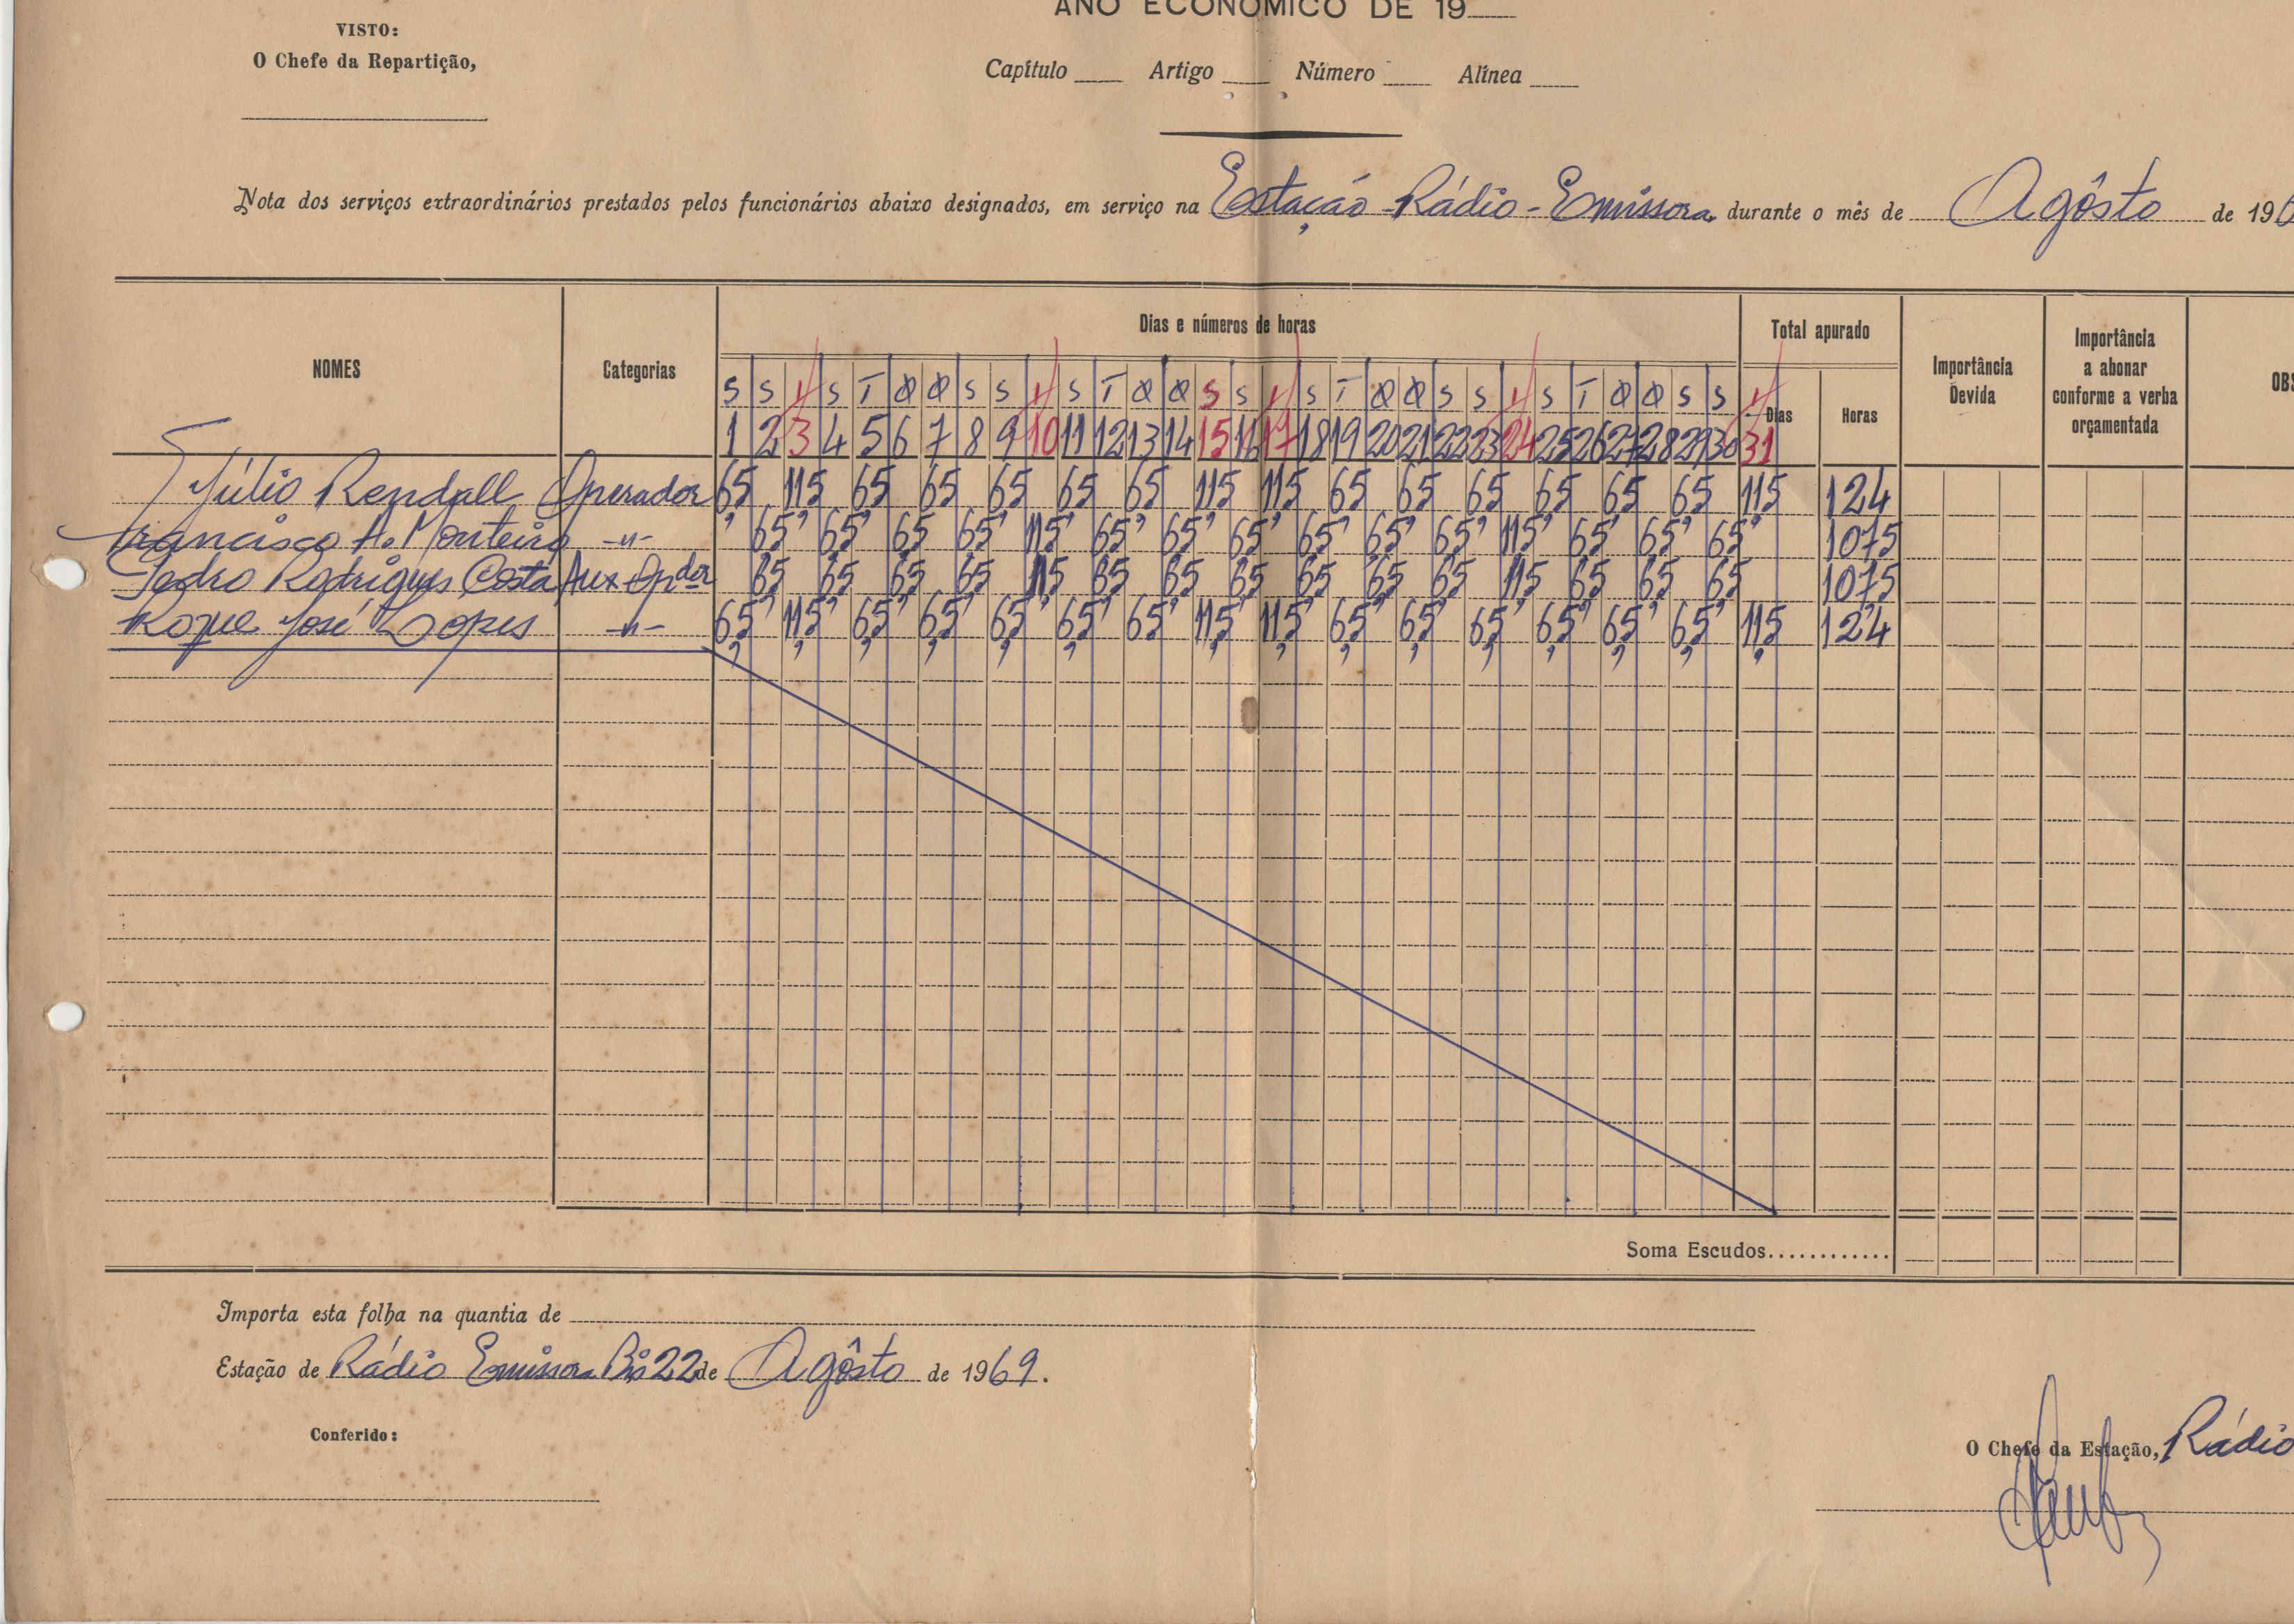 ANO ECONÓMICO DE 19
VISTO:
O Chefe da Repartição,
Capítulo Artigo Número Alínea
Nota dos serviços extraordinários prestados pelos funcionários abaixo designados, em serviço na Estação Rádio-Emissora, durante o mês de Agôsto de 196
NOMES Categorias Dias e números de horas Total apurado Importância Devida Importância a abonar conforme a verba orçamentada OBS
Dias Horas
S S S T Q Q S S S T Q Q S S S T Q Q S S S T Q Q S S
1 2 3 4 5 6 7 8 9 10 11 12 13 14 15 16 17 18 19 20 21 22 23 24 25 26 27 28 29 30 31
Júlio Rendall Operador 6,5 11,5 6,5 6,5 6,5 6,5 6,5 11,5 11,5 6,5 6,5 6,5 6,5 6,5 6,5 11,5 124
Francisco A. Monteiro -"- 6,5 6,5 6,5 6,5 11,5 6,5 6,5 6,5 6,5 6,5 6,5 11,5 6,5 6,5 6,5 107,5
Pedro Rodrigues Costa Aux Opdor 6,5 6,5 6,5 6,5 11,5 6,5 6,5 6,5 6,5 6,5 6,5 11,5 6,5 6,5 6,5 107,5
Roque José Lopes -"- 6,5 11,5 6,5 6,5 6,5 6,5 6,5 11,5 11,5 6,5 6,5 6,5 6,5 6,5 6,5 11,5 124
Soma Escudos............
Importa esta folha na quantia de
Estação de Rádio Emissora 22 de Agôsto de 1969.
Conferido:
O Chefe da Estação, Rádio